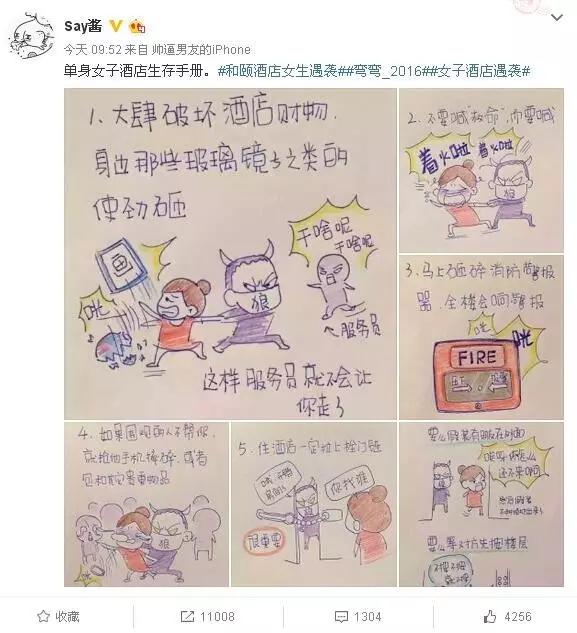 Say酱
今天 09:52 来自 帅逼男友的iPhone
单身女子酒店生存手册。#和颐酒店女生遇袭##弯弯_2016##女子酒店遇袭#
1、大肆破坏酒店财物.
身边那些玻璃镜子之类的
使劲砸
画
咣
狼
干啥呢
干啥呢
服务员
这样服务员就不会让
你走了
2、不要喊"救命",而要喊
着火啦 着火啦
狼
3、马上砸碎消防警报
器、全楼会响警报
咣
咣
FIRE
4、如果围观的人不帮你,
就拉他手机摔碎、或者
包和其它贵重物品
狼
5、住酒店一定拉上栓门链
你找谁
狼
很重要
要么假装有朋友在对面
狼
要么等对方先摁楼层
狼
收藏
11008
1304
4256